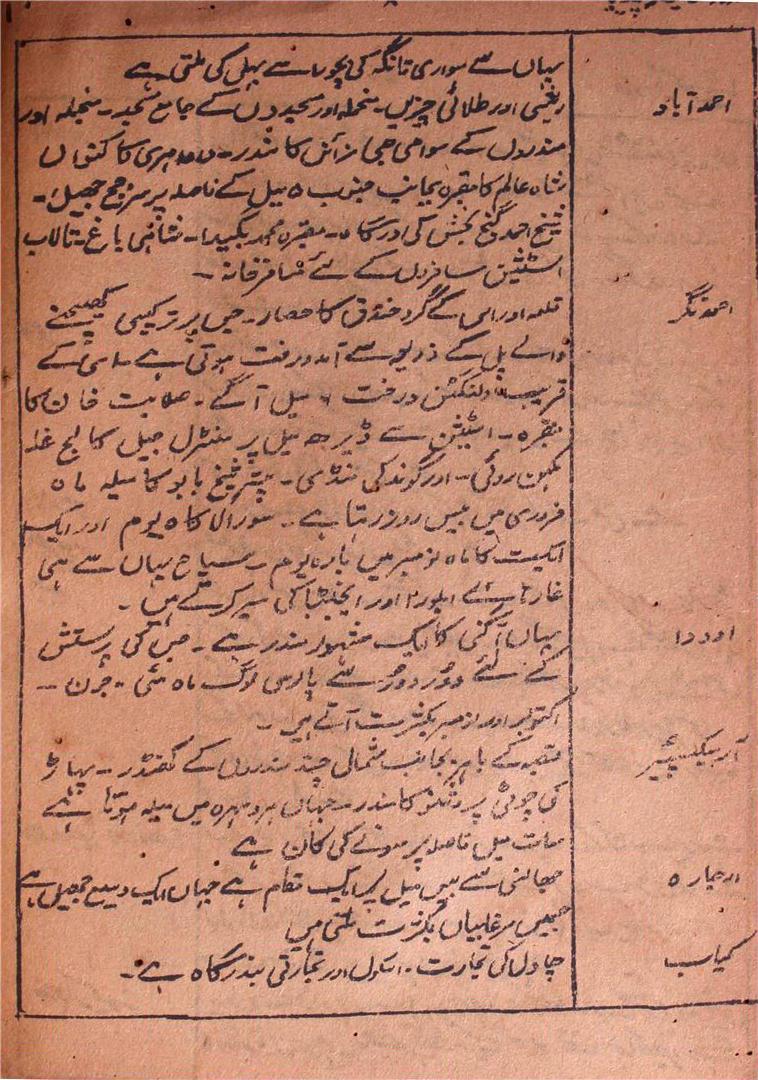 یہاں سے سواری تانگہ کی بچورا سے پہلی کی ملتی ہے
احمد آباد
ریشمی اور طلائی چیزیں۔ منجملہ اور مسجدوں کے جامع مسجد۔ منجملہ اور
مندروں کے سوامی جی نرائن کا مندر۔ کا کنواں
شاہ عالم کا مقبرہ بجانب جنوب ۵ میل کے فاصلہ پر سرجج جھیل۔
شیخ احمد گنج بخش کی درگاہ۔ مقبرہ محمد بگیدا۔ شاہی باغ۔ تالاب
اسٹیشن مسافروں کے لئے مسافرخانہ۔
احمد نگر
قلعہ اور اس کے گرد خندق کا حصار۔ جس پر ترکیبی کھینچنے
والے پل کے ذریعہ سے آمدورفت ہوتی ہے۔ اسی کے
قریب ولنگٹن درخت ۶ میل آگے۔ صلابت خان کا
مقبرہ۔ اسٹیشن سے ڈیڑھ میل پر سنٹرل جیل کالج غلہ
روئی۔ اور گوند کی منڈی۔ شیخ بابو کا میلہ ماہ
فروری میں بیس روز رہتا ہے۔ کا ۵ یوم اور ایک
کا ماہ نومبر میں بارہ یوم۔ سیاح یہاں سے ہی
غار ہائے ایلورا اور ایجنٹا کی سیر کرتے ہیں۔
اودوا
یہاں آگنی کا ایک مشہور مندر ہے۔ جس کی پرستش
کے لئے دور دور سے پارسی لوگ ماہ مئی۔ جون۔۔
اکتوبر اور نومبر بکثرت آتے ہیں۔
قصبہ کے باہر بجانب شمالی چند مندروں کے کھنڈر۔ پہاڑ
کی چوٹی پر کا مندر۔ جہاں ہر دسہرہ میں میلہ ہوتا ہے
سات میل فاصلہ پر سونے کی کان ہے
ارجارہ
جھانسی سے بیس میل پر ایک مقام ہے جہاں ایک وسیع جھیل ہے
جسمیں مرغابیاں بکثرت ملتی ہیں
کمیاب
چاول کی تجارت۔ اسکول اور تجارتی بندرگاہ ہے۔